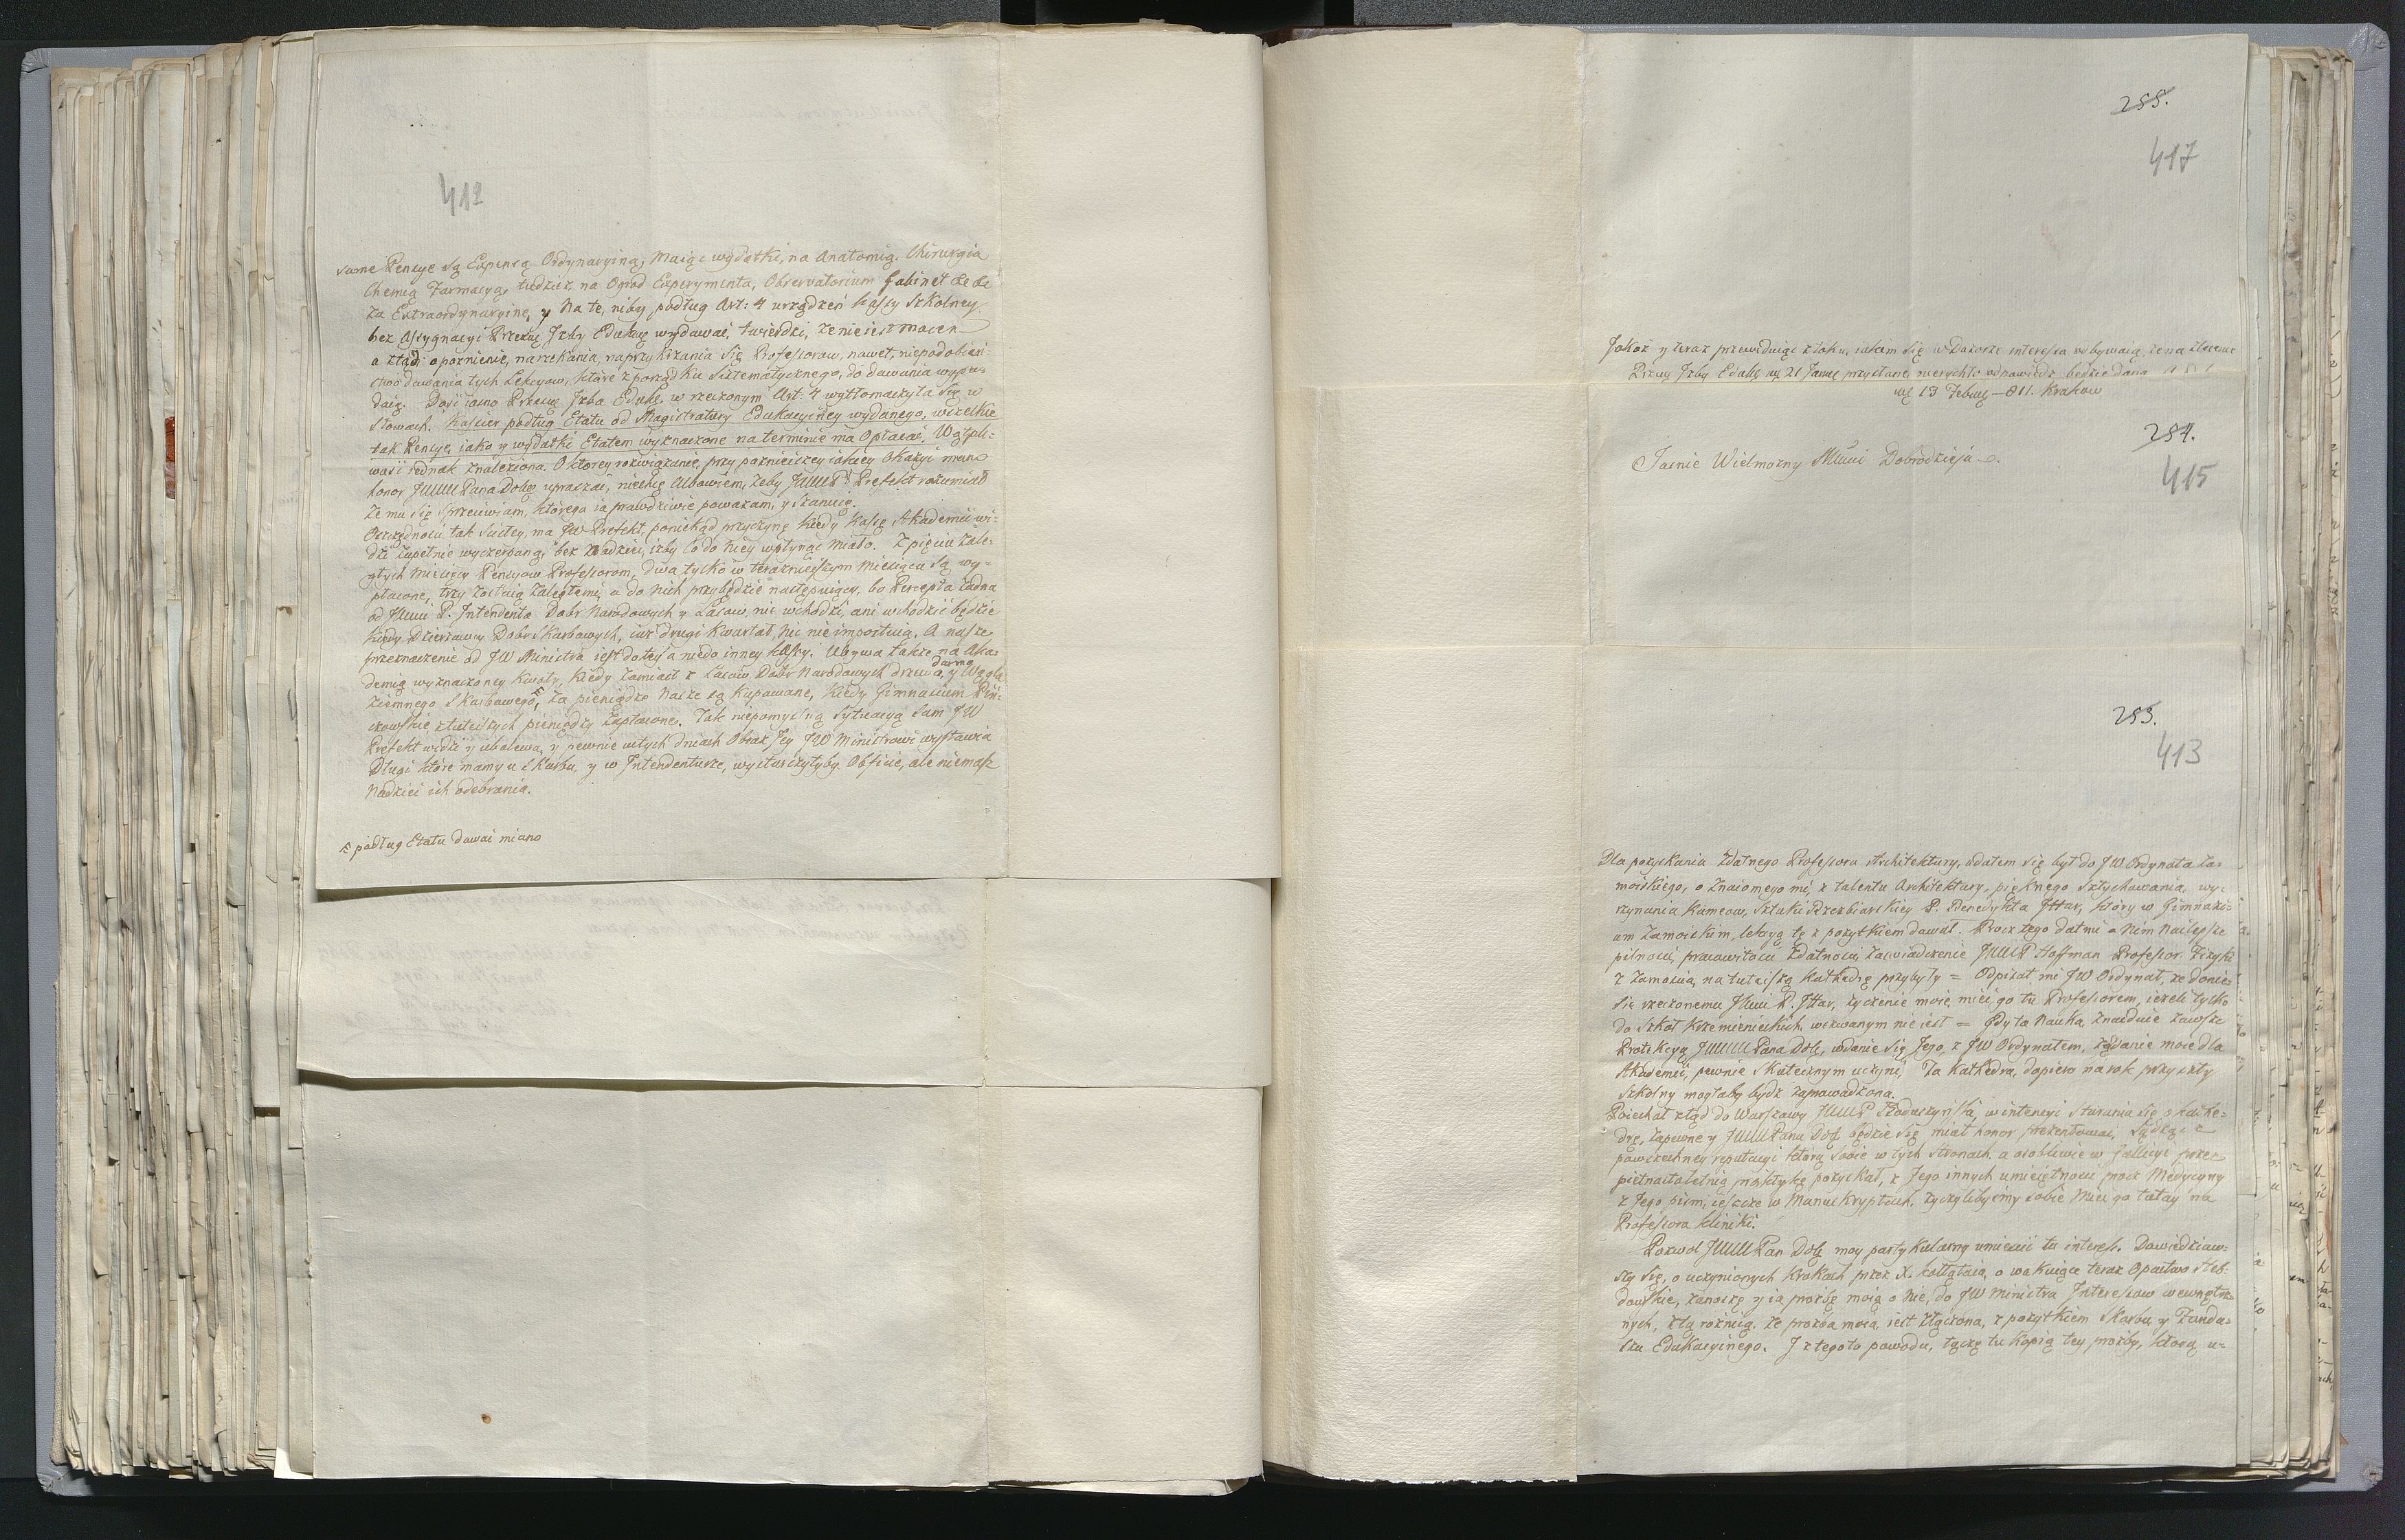 412
same Pensye są Expensą Ordynaryiną, Maiąc wydatki, na Anatomią, Chirurgią
Chemią Farmacyą, tudzież, na Ogrod Experymenta, Obserwatorium Gabinet &c &c
za Extraordynaryine, y Na te, niby podług Art: 4 urządzeń Kassy Szkolney
bez Assygnacyi Przeswę. Izby Edukcy wydawać, twierdzi, że nie iest mocen
a ztąd: opoznienie, narzekania, naprzykrzania się Professorow, nawet, niepodobień-
stwo dawania tych Lekcyow, które z porządku Sistematycznego, do dawania wypa-
daią. Dość iasno Przeswę Izba Edukc. w rzeczonym Art: 4 wytłomaczyła się w
słowach. Kassier podług Etatu od Magistratury Edukacyiney wydanego, wszelkie
tak Pensye, iako y wydatki Etatem wyznaczone na terminie ma Opłacać, Wątpli-
wość iednak znaleziona. O ktorey rozwiązanie, przy pozniejszey iakiey Okazyi mam
honor JWWW Pana Dobę upraszać, niechcę Albowiem, żeby JWWP Prefekt rozumiał
że mu się sprzeciwiam, którego ia prawdziwie poważam, y szanuię.
Oszczędności tak ścisłey, ma JW Prefekt, poniekąd przyczynę kiedy Kassę Akademii wi-
dzi zupełnie wyczerpaną, bez Nadziei, izby co do Niey wpłynąć miało. Z pięciu zale-
głych Miesięcy Pensyow Professorom, dwa tylko w teraznieyszym Miesiącu są wy-
płacone, trzy zostaią zaległemi, a do nich przybędzie następuiący, bo Percepta żadna
od JWmci P. Intendenta Dobr Narodowych y Lasow, nie wchodzi, ani wchodzić będzie
kiedy Dzierzawcy Dobr Skarbowych, iuż drugi Kwartał, Nic nie importuią. A nasze
przeznaczenie od JW Ministra iest do tey a nie do inney Kassy. Ubywa także na Aka-
demią wyznaczoney Kwoty, kiedy zamiast z Lasow Dobr Narodowych drzewa, darmo y Węgla
ziemnego Skarbowego, F za pieniądze Nasze są kupowane, kiedy Gimnazium Piń-
czowskie z tuteiszych pieniędzy zapłacone. Tak niepomyslną Sytuacyą sam JW
Prefekt widzi y ubolewa, y pewnie w tych dniach Obraz Jey JW Ministrowi wystawia
Długi które mamy u Skarbu, y w Intendenturze, wystarczyłyby Obficie, ale niemasz
Nadziei ich odebrania.
F podług Etatu dawać miano
255.
417
Jakoż y teraz przewiduiąc z toku, iakim się w Dozorze interessa odbywaią, że na zlecenie
Przeswę Izby Edukc. wę 21 Janu. przysłane, nierychło odpowiedz będzie dana
wę 13 Febru. – 811. Krakow
254.
415
Jaśnie Wielmożny Mości Dobrodzieju
253.
413
Dla pozyskania Zdatnego Professora Architektury, udałem się był do JW Ordynata Za-
moiskiego, o Znaiomego mi, z talentu Architektury, pięknego sztychowania, wy-
rzynania Kameow, Sztuki Rzezbiarskiey P. Benedykta Ittar, który w Gimnazi-
um Zamoiskim, lekcyą tę z pożytkiem dawał. Procz tego dał mi o Nim Nailepsze
pilności, pracowitości Zdatności, zaswiadczenie JWWP Hoffman Professor Fizyki
z Zamościa, na tuteiszą Kathedrę przybyły = Odpisał mi JW Ordynat, że donie-
sie rzeczonemu JWmci P. Ittar, życzenie moie, mieć go tu Professorem, ieżeli tylko
do Szkoł Krzemienieckich, wezwanym nie iest = Gdy ta Nauka, znayduie zawsze
Protekcyą JWWW Pana Dobę, wdanie się Jego, z JW Ordynatem, żądanie moie dla
Akademii, pewnie skutecznym uczyni, Ta Kathedra, dopiero na rok przyszły
szkolny mogłaby bydź zaprowadzona.
Poiechał ztąd do Warszawy JWWP w intencyi starania się o Kathe-
drę, zapewne y JWWW Panu Dobę będzie się miał honor prezentować. Sądząc z
powszechney reputacyi ktorą sobie w tych stronach, a osobliwie w Gallicyi przez
piętnastoletnią praktykę pozyskał, z Jego innych umieiętności procz Medycyny
z Jego pism, ieszcze w Manuskryptach, życzylibyśmy sobie mieć go tutay na
Professora kliniki.
Pozwol JWWW Pan Dobę moy partykularny umieścić tu interess. Dowiedziaw-
szy się, o uczynionych krokach przez X. Kołłątaia, o wakuiące teraz Opactwo Heb-
dowskie, zanoszę y ia prozbę moią o Nie, do JW Ministra Interessow wewnętrz-
nych, z tą rożnicą, że prozba moia, iest złączona, z pożytkiem Skarbu, y Fundu-
szu Edukacyinego. I z tego to powodu, łączę tu Kopią tey prozby, którą u-